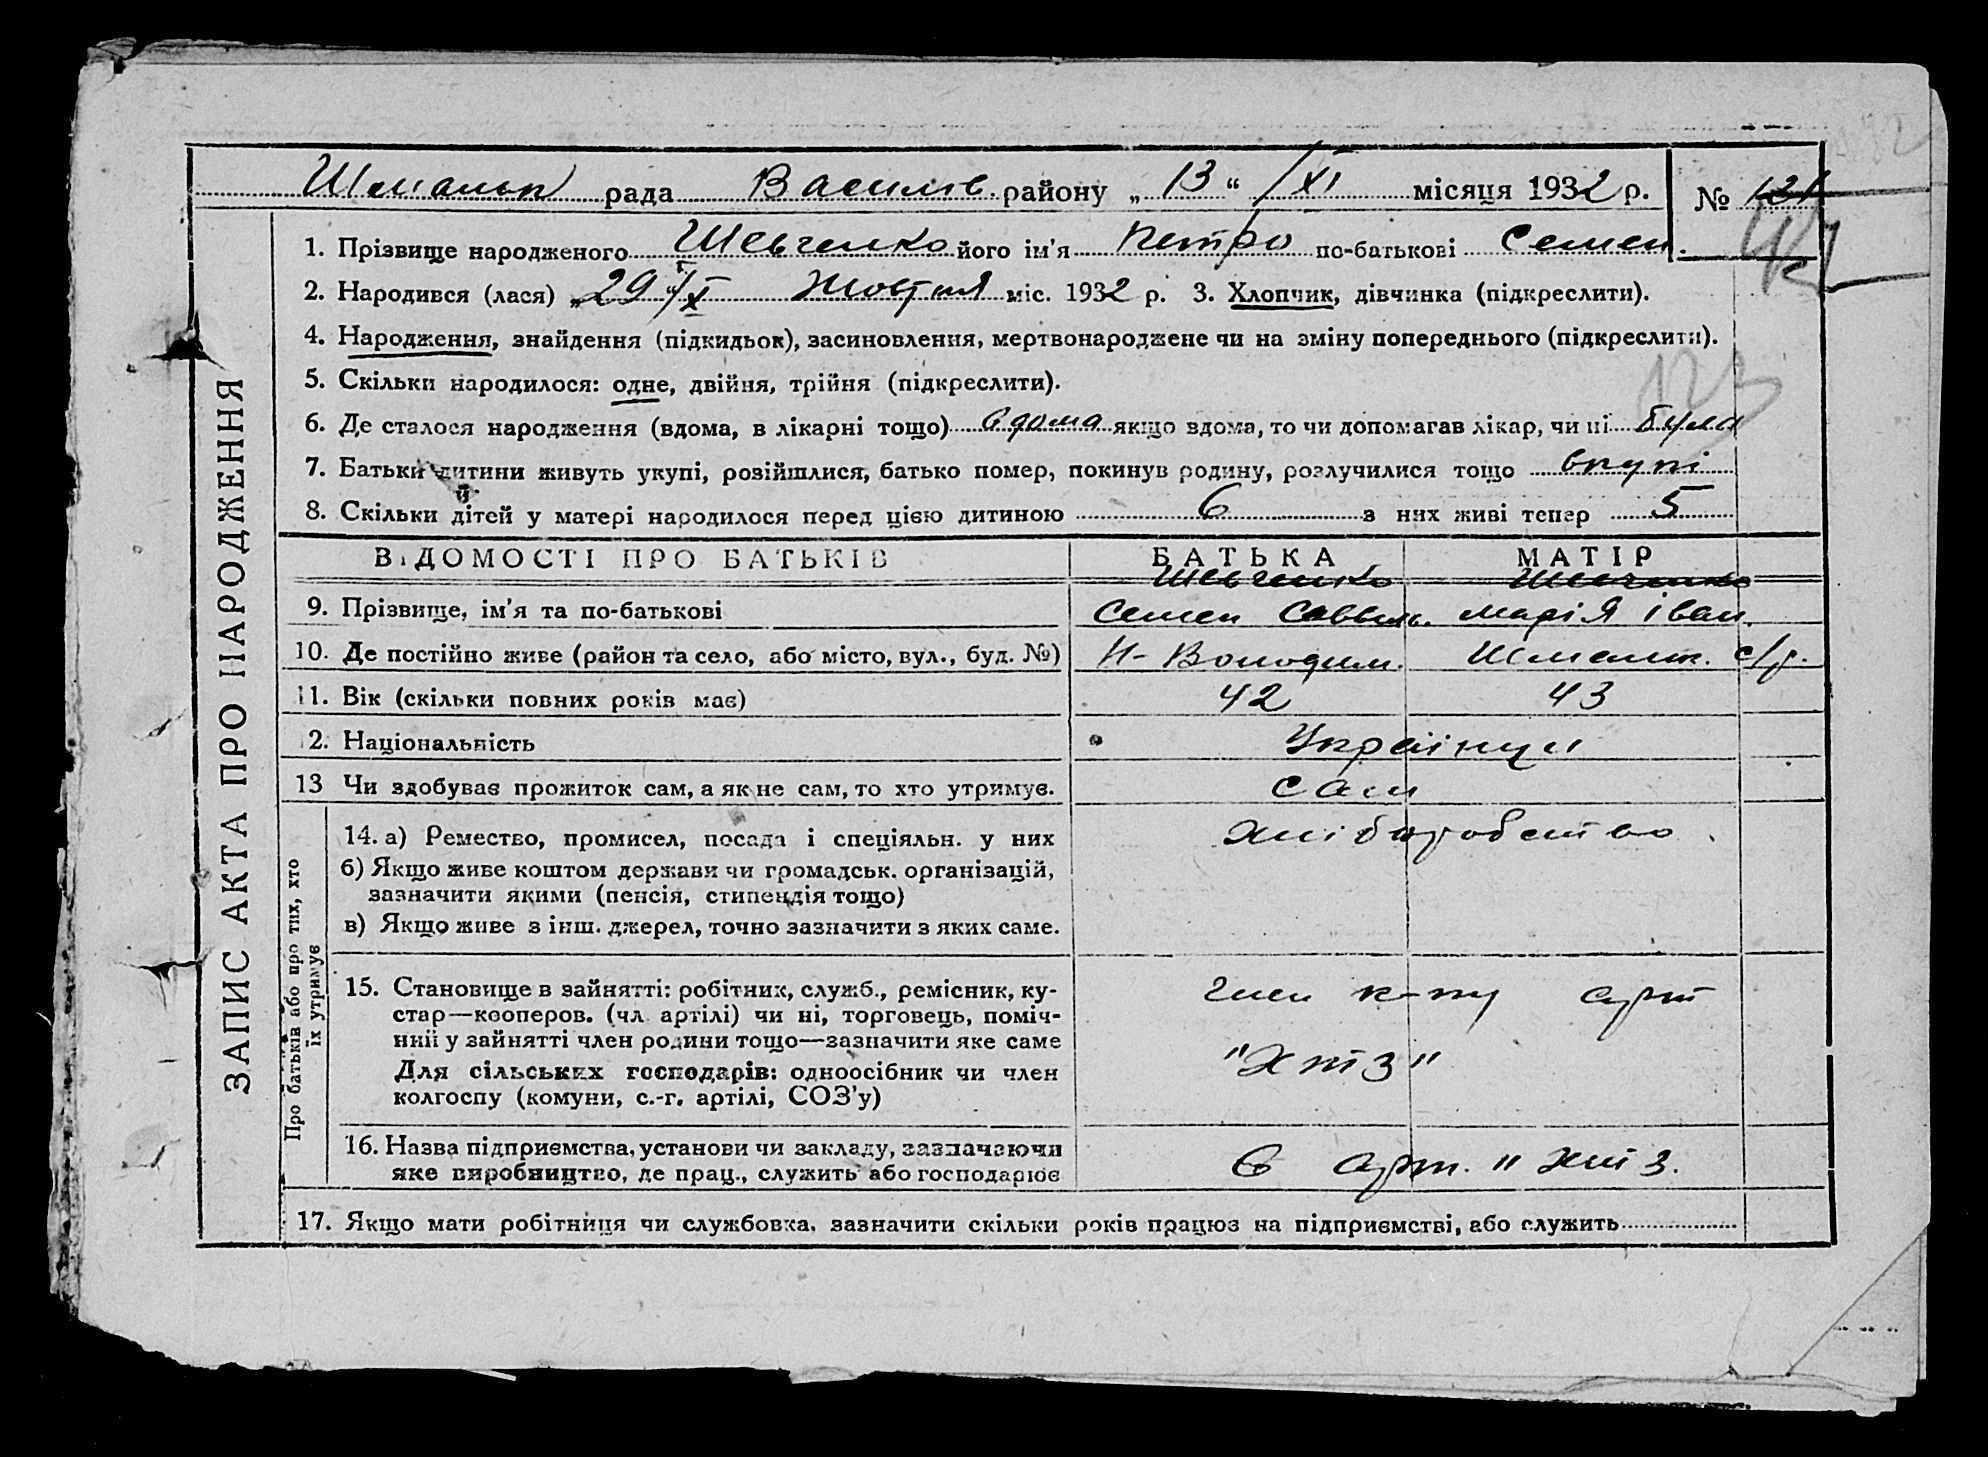 Шмальк рада Василів. району „13“ /XI місяця 1932 р. № 121
1. Прізвище народженого Шевченко його ім'я Петро по-батькові Семен.
2. Народився (лася) „29“/X Жовтня міс. 1932 р. 3. Хлопчик, дівчинка (підкреслити).
4. Народження, знайдення (підкидьок), засиновлення, мертвонароджене чи на зміну попереднього (підкреслити).
123
5. Скільки народилося: одне, двійня, трійня (підкреслити).
6. Де сталося народження (вдома, в лікарні тощо) вдома якщо вдома, то чи допомагав лікар, чи ні була
7. Батьки дитини живуть укупі, розійшлися, батько помер, покинув родину, розлучилися тощо вкупі
8. Скільки дітей у матері народилося перед цією дитиною 6 з них живі тепер 5
ВІДОМОСТІ ПРО БАТЬКІВ БАТЬКА МАТІР
Шевченко Шевченко
9. Прізвище, ім'я та по-батькові Семен Савель. Марія Іван.
10. Де постійно живе (район та село, або місто, вул., буд. №) Н-Володим. Шмальк. с/р.
11. Вік (скільки повних років має) 42 43
12. Національність Українці
13 Чи здобуває прожиток сам, а як не сам, то хто утримує. Сам
14. а) Ремество, промисел, посада і спеціяльн. у них хліборобство
б) Якщо живе коштом держави чи громадськ. організацій,
зазначити якими (пенсія, стипендія тощо)
в) Якщо живе з інш. джерел, точно зазначити з яких саме.
15. Становище в зайнятті: робітник, служб., ремісник, ку-
стар—кооперов. (чл. артілі) чи ні, торговець, поміч-
ний у зайнятті член родини тощо—зазначити яке саме
Для сільських господарів: одноосібник чи член
колгоспу (комуни, с.-г. артілі, СОЗ'у)
член к-пу арт
"ХТЗ"
16. Назва підприємства, установи чи закладу, зазначаючи
яке виробництво, де прац., служить або господарює
в арт. "ХТЗ.
17. Якщо мати робітниця чи службовка, зазначити скільки років працює на підприємстві, або служить
ЗАПИС АКТА ПРО НАРОДЖЕННЯ
Про батьків або про тих, хто
їх утримує